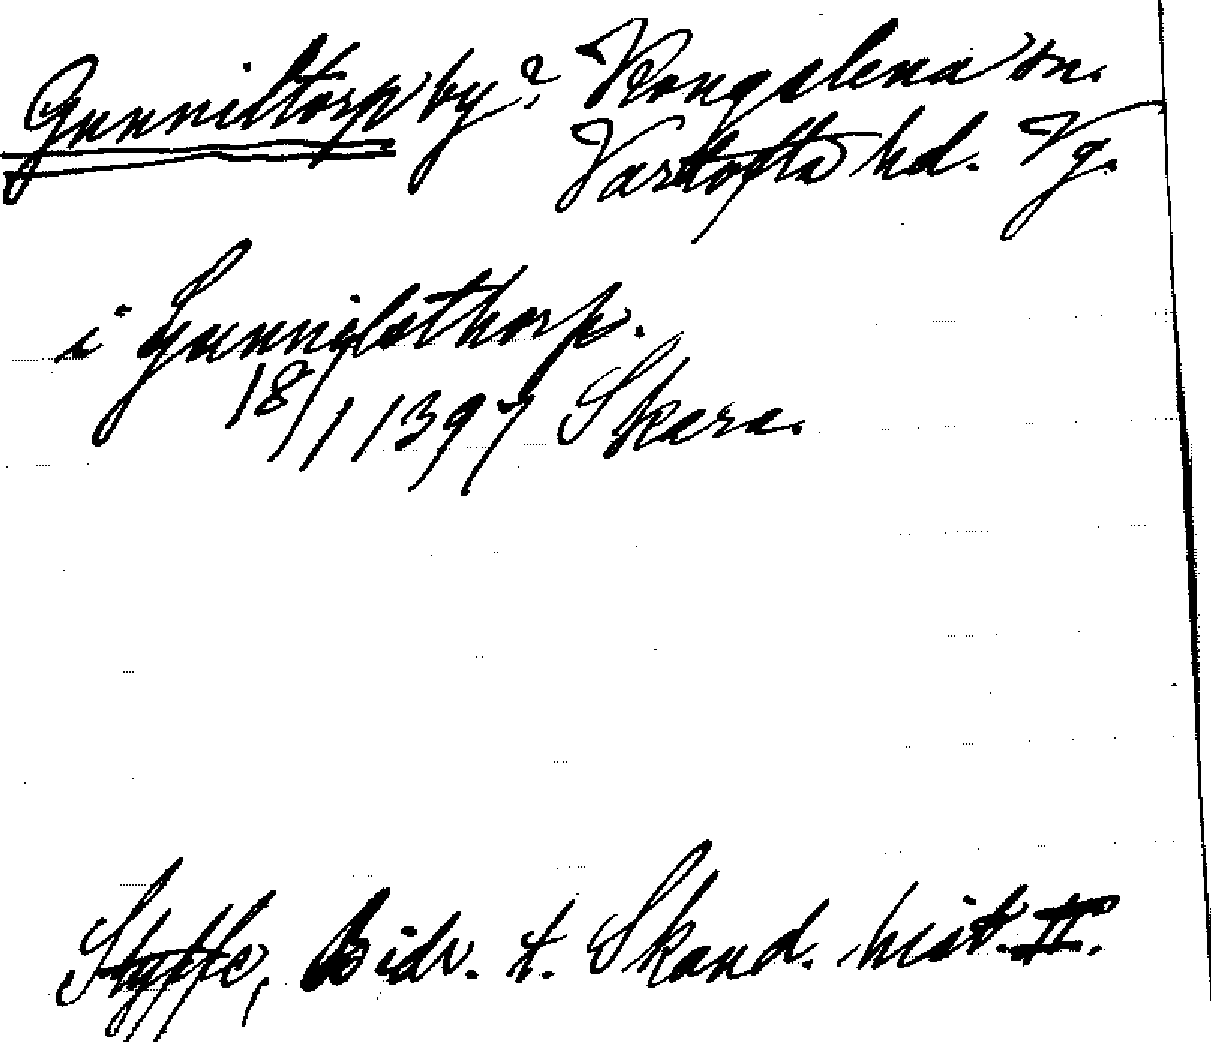 Gunniltorp by? Kongslena sn.
Vartofta hd. Vg.
i Gunnilsthorp.
18/1 1397 Skara.
Styffe, Bidr. t. Skand. hist. II.